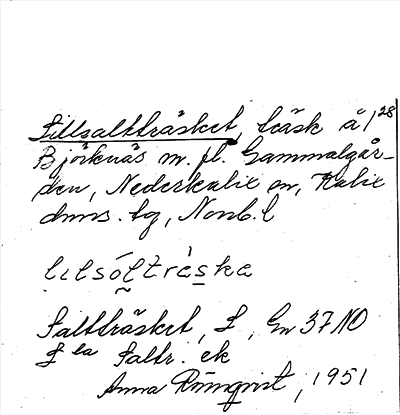 Lillsaltträsket, träsk å 1/28
Björknäs m. fl. Gammalgår-
den, Nederkalix sn, Kalix
dnms. tg, Norrb. l
lilsóltrὰska
Saltträsket, L, En 37 NO
L la Saltr. ek
Anna Rönnqvist, 1951